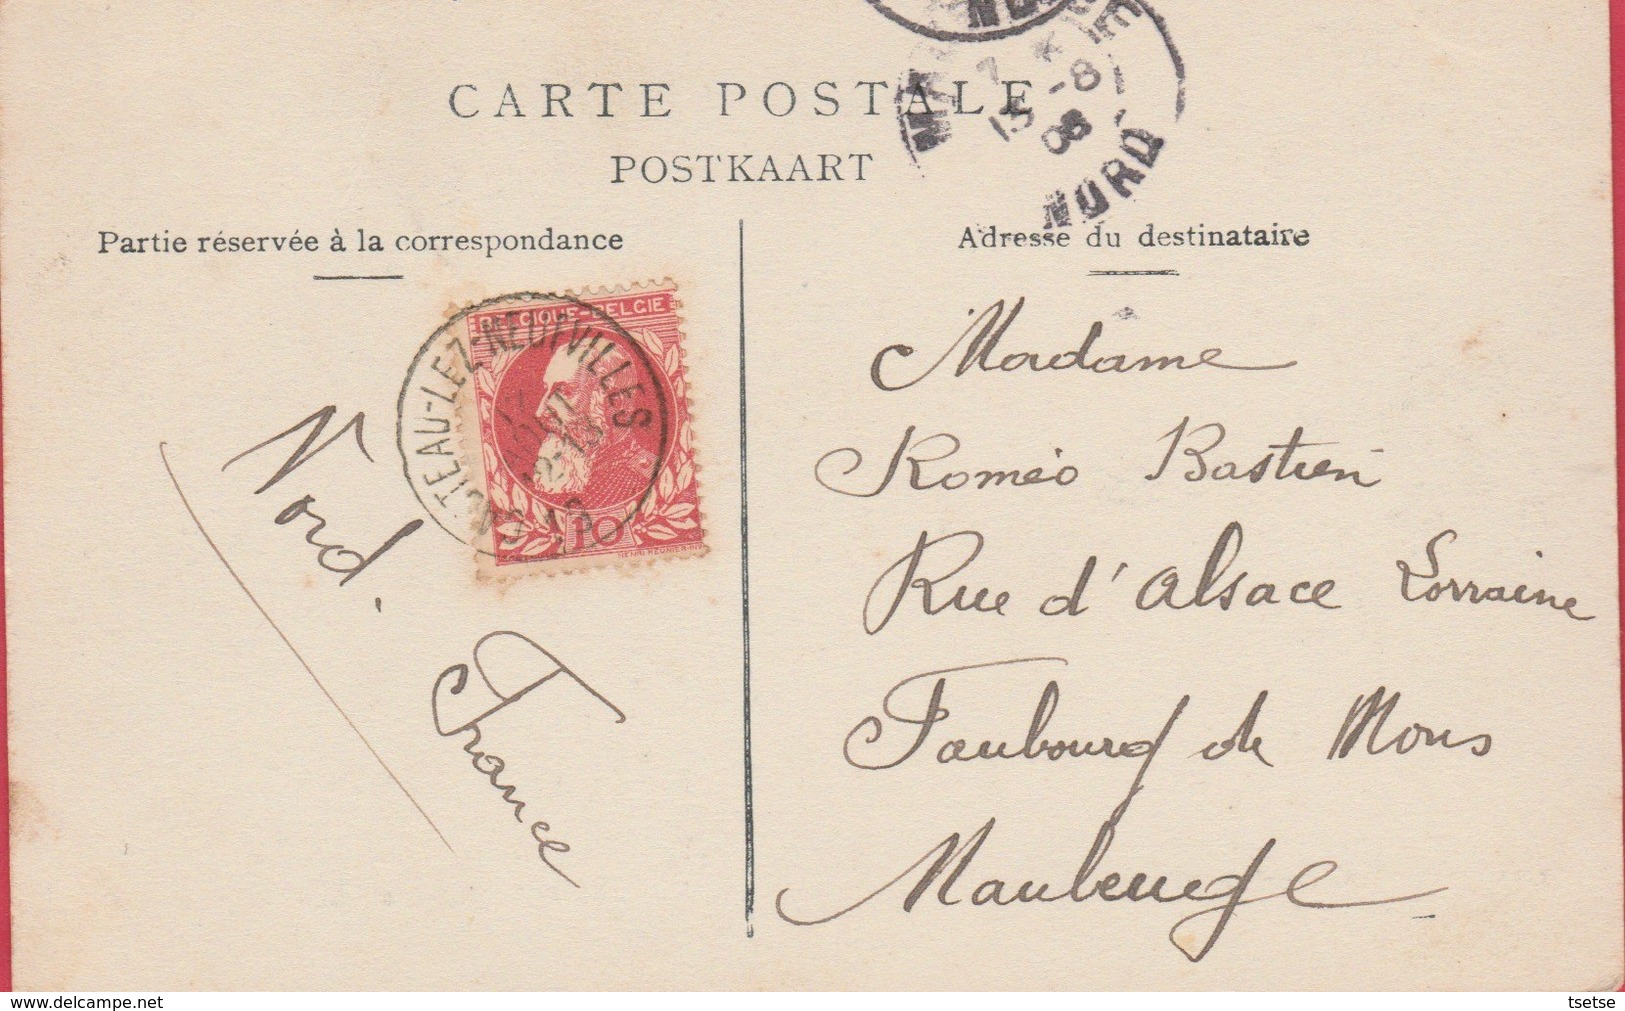 CARTE POSTALE
POSTKAART
NORD
Partie réservée à la correspondance
Adresse du destinataire
BELGIQUE-BELGIE
CASTEAU-LEZ-NEUFVILLES
10
Nord.
France
Madame
Roméo Bastien
Rue d'Alsace Lorraine
Faubourg de Mons
Maubeuge
www.delcampe.net
tsetse